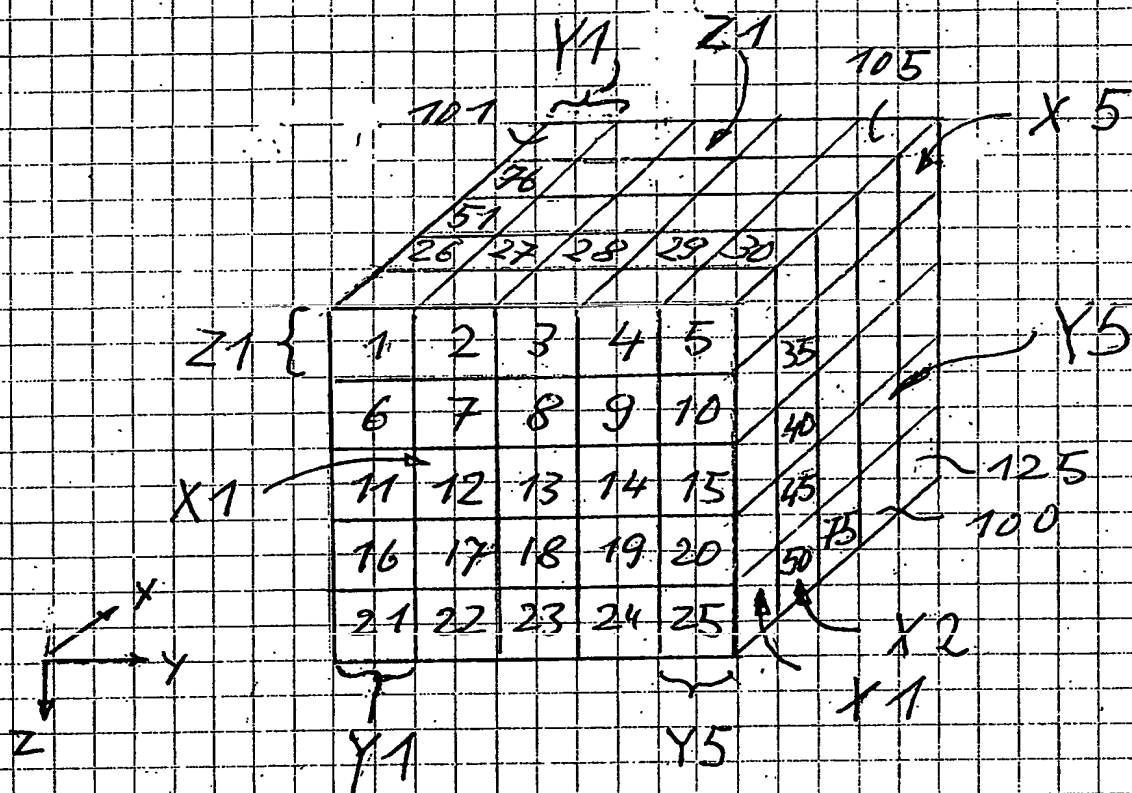 Y1 Z1
101 105
X5
76
51
26 27 28 29 30
Z1 1 2 3 4 5 35 Y5
6 7 8 9 10 40
X1 11 12 13 14 15 45 125
16 17 18 19 20 50 75 100
21 22 23 24 25
X
Y
Z
X2
X1
Y1 Y5